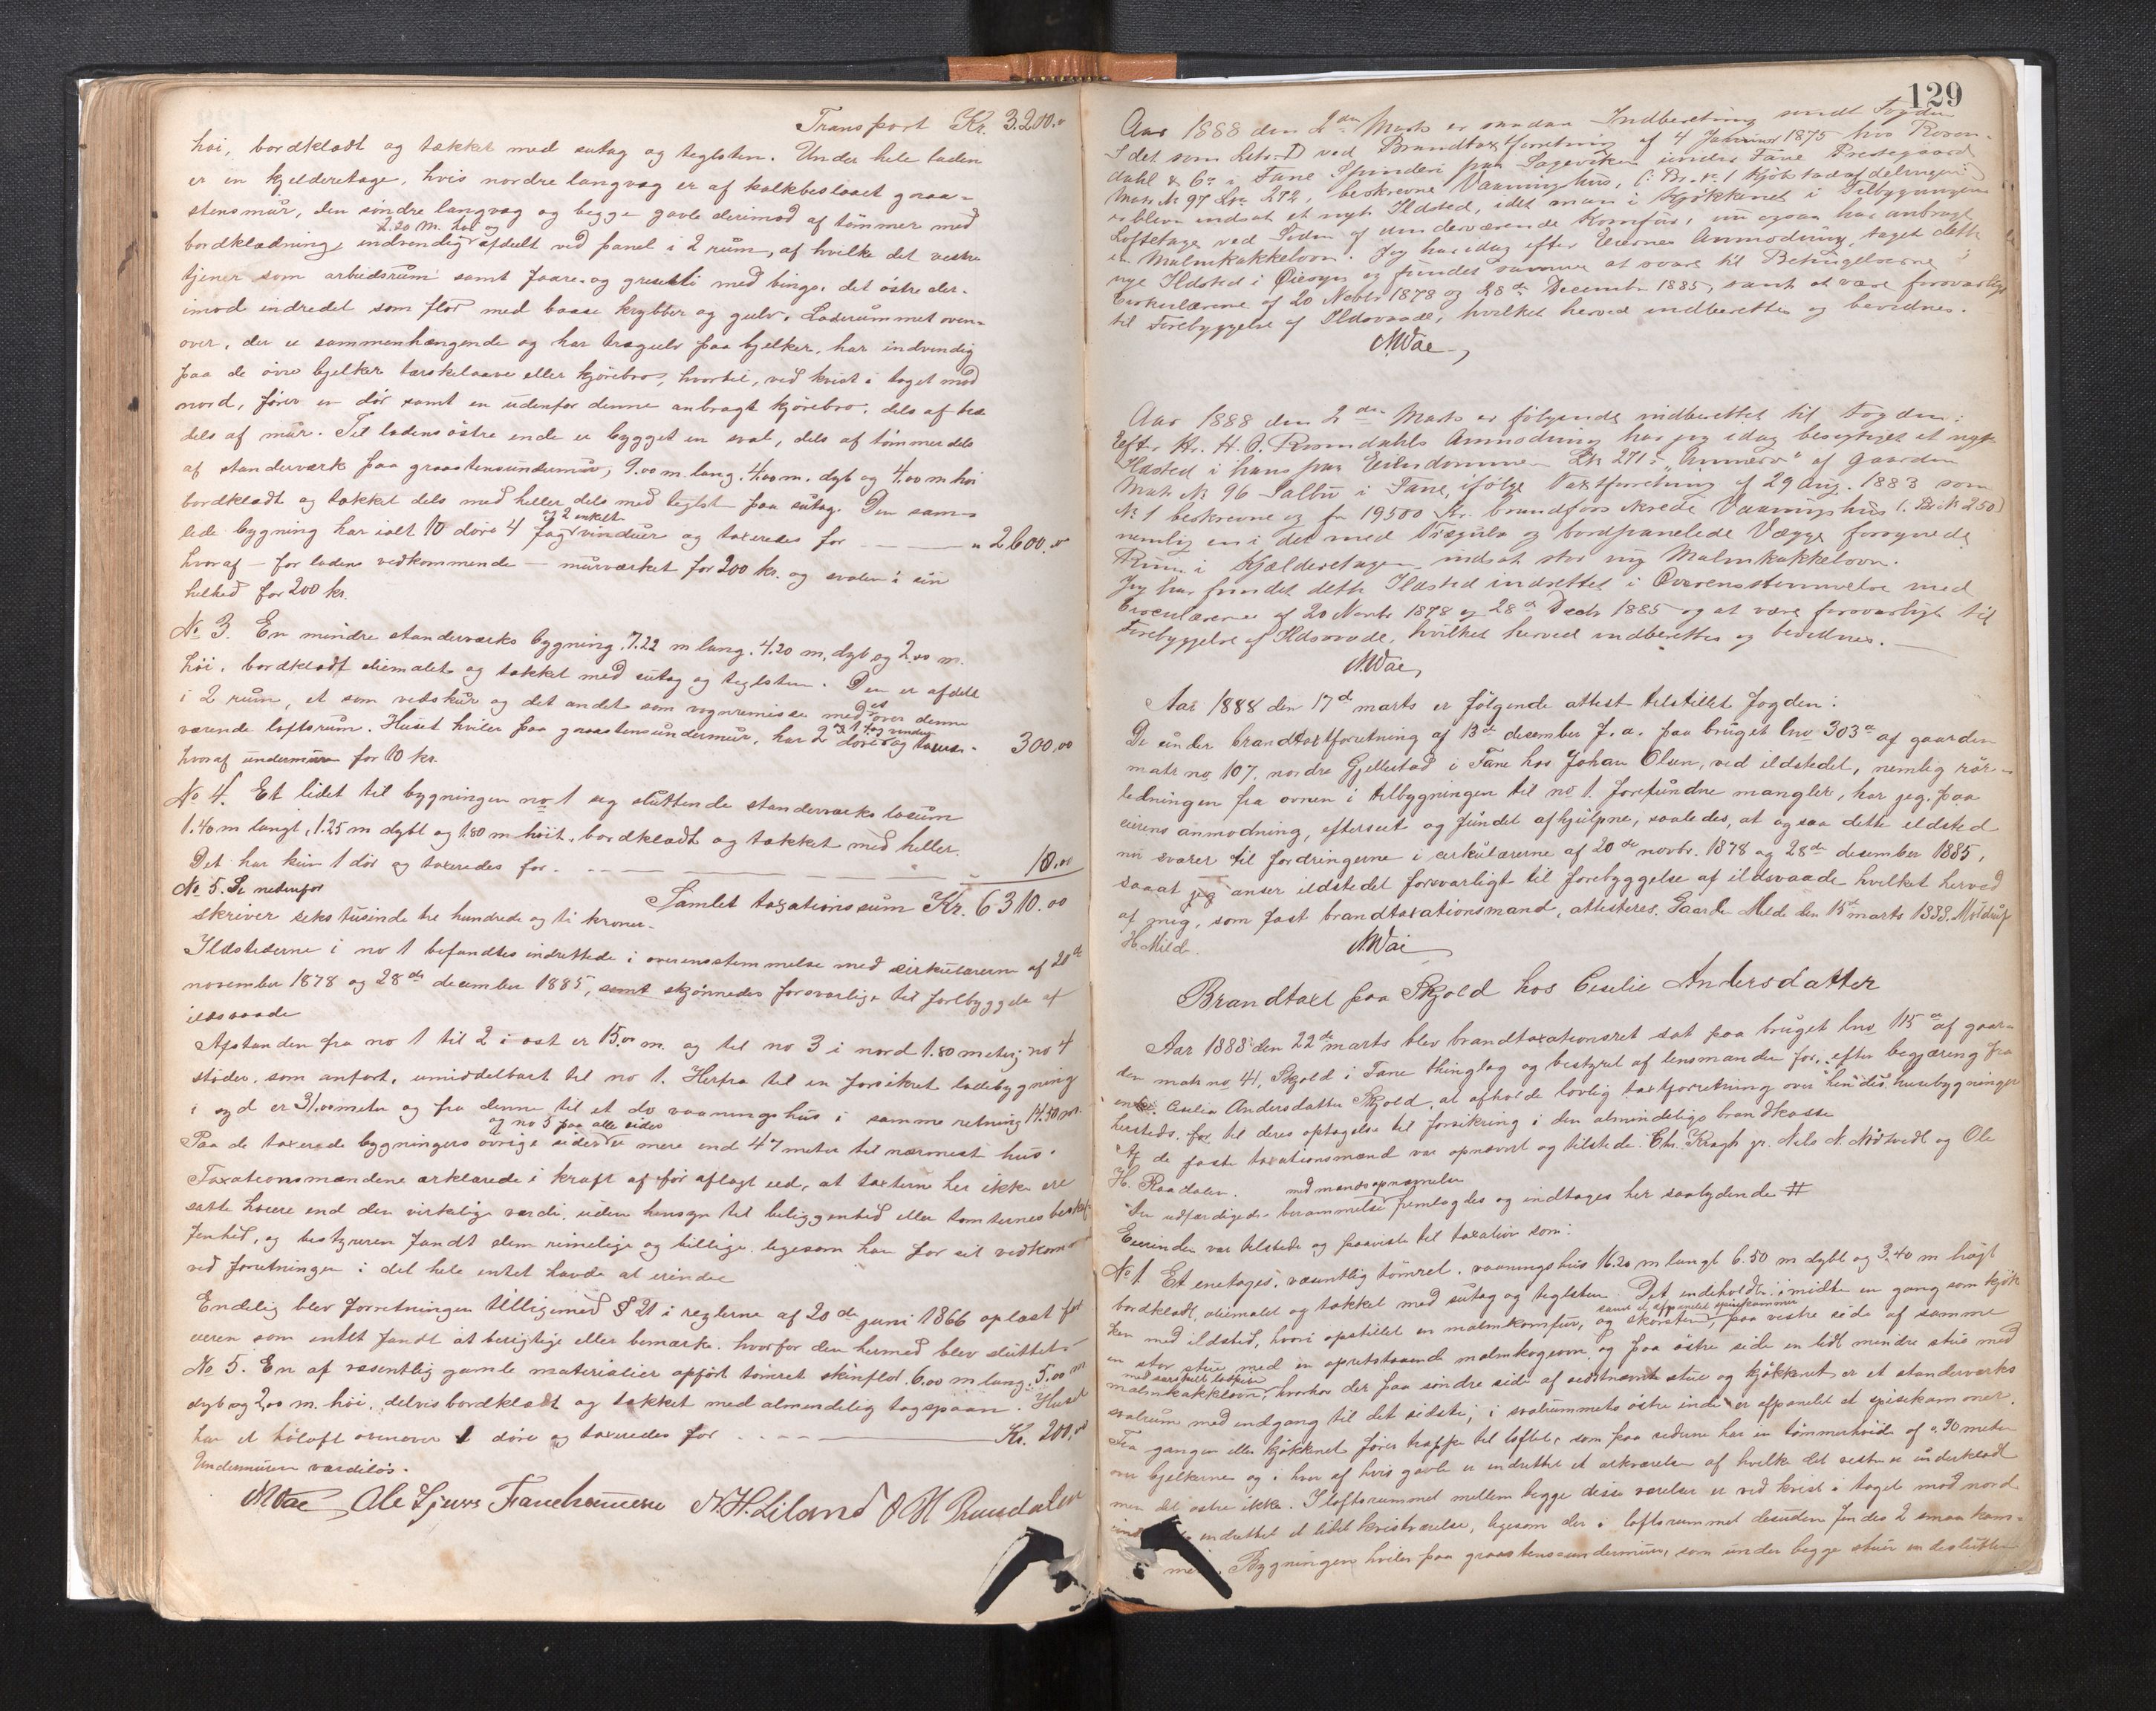 Transport Kr. 3200.00
høi, bordklædt og tækket med sutag og teglsten. Under hele laden
er en kjelderetage, hvis nordre langvæg er af kalkbeslaaet graa-
stensmur, den søndre langvæg og begge gavle derimod af tømmer med
2.20 m. høi og
bordklædning, indvendig afdelt ved panel i 2 rum, af hvilke det vestre
tjener som arbeidsrum samt faare- og grisesti med binge, det østre der-
imod indredet som flor med baase krybber og gulv. Laderummet oven-
over, der er sammenhængende og har trægulv paa bjelker, har indvendig
paa de øvre bjelker tærskelaave eller kjørebro, hvortil, ved kvist i taget mod
nord, fører en dør samt en udenfor denne anbragt kjørebro, dels af træ
dels af mur. Til ladens østre ende er bygget en sval, dels af tømmer dels
af standerværk paa graastensundermur, 9.00 m. lang. 4.00 m. dyb og 4.00 m høi
bordklædt og tækket dels med heller dels med teglst. paa sutag. Den sam-
og 2 enkelt
lede bygning har ialt 10 døre 4 fag vinduer og taxeredes for — — " 2600.00
hvoraf - for ladens vedkommende - murværket for 200 kr. og svalen i sin
helhed for 200 kr.
No 3. En mindre standerværks bygning. 7.22 m lang. 4.20 m, dyb og 2.00 m.
høi, bordklædt oliemalet og tækket med sutag og teglsten. Den er afdelt
i 2 rum, et som vedskur og det andet som vognremisse med et over denne
og 1 fag vindu
værende loftsrum. Huset hviler paa graastensundermur, har 2 døre og taxeres. 300,00
hvoraf undermuren for 10 kr.
No 4. Et lidet til bygningen no 1 sig sluttende standerværks locum
1.40 m langt, 1.25 m dybt og 1.80 m høit, bordklædt og tækket med heller.
Det har kun 1 dør og taxeredes for. — — — 10.00
No 5. Se nedenfor
Samlet taxationssum Kr. 6310.00
skriver seks tusinde tre hundrede og ti kroner.
Ildstederne i no 1 befandtes indrettede i overensstemmelse med cirkulærerne af 20de
november 1878 og 28de december 1885, samt skjønnedes forsvarlige til forebyggelse af
ildsvaade
Afstanden fra no 1 til 2 i øst er 15.00 m. og til no 3 i nord 1.80 meter; no 4
støder, som anført, umiddelbart til no 1. Herfra til en forsikret ladebygning
i syd er 31.00 meter og fra denne til et do vaaningshus i samme retning 14.50 m.
og no 5 paa alle sider
Paa de taxerede bygningers øvrige sider er mere end 47 meter til nærmest hus.
Taxationsmændene erklærede i kraft af før aflagt ed, at taxterne her ikke ere
satte høiere end den virkelige værdi, uden hensyn til beliggenhed eller tomternes beskaf-
fenhed, og bestyreren fandt dem rimelige og billige. ligesom han for sit vedkommende
ved forretningen i det hele intet havde at erindre
Endelig blev forretningen tilligemed § 21 i reglerne af 20de juni 1866 oplæst for
eieren som intet fandt at berigtige eller bemærke. hvorfor den hermed blev sluttet.
No 5. En af væsentlig gamle materialier opført tømret skinflor. 6.00 m lang. 5.00 m
dyb og 2,00 m. høi, delvis bordklædt og tækket med almindelig tagspaan. Huset
har et høloft ovenover 1 døre og taxeredes for — — Kr. 200.00
Undermuren værdiløs.
M Wae Ole Hjuvs Fanehommeren N H. Liland O H Raadalen
129
Aar 1888 den 2den Marts er saadan Indberetning sendt Fogden
I det som Litr. D ved Brandtaxtforretning af 4 Januar 1875 hos Rosen-
dahl & Co i Fane Spinderi paa Sageviken under Fane Prestegaard
Matr. No 97 Lno 272, beskrevne Vaaningshus, (: Br. No 1 Kjøbstadafdelingen
er bleven indsat et nyt Ildsted, idet man i Kjøkkenet i Tilbygningens
Loftetage ved Siden af den derværende Komfur, nu ogsaa har anbragt
en Malmkakkelovn. Jeg har idag efter Eiernes Anmodning, taget dette
nye Ildsted i Øiesyn og fundet samme at svare til Betingelserne i
Cirkulærerne af 20 Novbr 1878 og 28de December 1885, samt at være forsvarligt
til Forebyggelse af Ildsvaade, hvilket herved indberettes og bevidnes.
M Wae
Aar 1888 den 2den Marts er følgende indberettet til Fogden:
Efter Hr. H. O. Rosendahls Anmodning har jeg idag besigtiget et nyt
Ildsted i hans paa Eiendommen Lno 271 "Annero" af Gaarden
Matr No 96 Salbu i Fane, ifølge Taxtforretning af 29 Aug. 1883 som
No 1 beskrevne og for 19500 Kr. brandforsikrede Vaaningshus (: Br. No 250)
nemlig en i det med Trægulv og bordpanelede Vægge forsynede
Rum i Kjælderetagen indsat stor ny Malmkakkelovn.
Jeg har fundet dette Ildsted indrettet i Overensstemmelse med
Circulærerne af 20 Novbr 1878 og 28de Decbr 1885 og at være forsvarligt til
Forebyggelse af Ildsvaade, hvilket herved indberettes og bevidnes.
M Wae,
Aar 1888 den 17de marts er følgende attest tilstillet fogden:
De under brandtaxtforretning af 13de december f. a. paa bruget lno 303a af gaarden
matr no 107, nordre Gjellestad i Fane hos Johan Olsen, ved ildstedet, nemlig rør-
ledningen fra ovnen i tilbygningen til no 1. forefundne mangler, har jeg, paa
eierens anmodning, efterseet og fundet afhjulpne, saaledes, at ogsaa dette ildsted
nu svarer til fordringerne i cirkulærerne af 20de novbr. 1878 og 28de desember 1885,
saaat jeg anser ildstedet forsvarligt til forebyggelse af ildsvaade hvilket herved
af mig, som fast brandtaxationsmand, attesteres. Gaarden Milde den 15de marts 1888. Moldrup
H. Milde.
M Wae
Brandtaxt paa Skjold hos Cecilie Andersdatter
Aar 1888 den 22de marts blev brandtaxationsret sat paa bruget lno 115a af gaar-
den matr no 41, Skjold i Fane thinglag og bestyret af lensmanden for, efter begjæring fra
enke Cecilia Andersdatter Skjold, at afholde lovlig taxtforretning over hendes husebygninger
hersteds, for til deres optagelse til forsikring i den almindelige brandkasse
Af de faste taxationsmænd var opnævnt og tilstede: Chr. Kragh gr. Nils N. Midtvedt og Ole
H. Raadalen.
med mandsopnævnelse
Den udfærdigede berammelse fremlagdes og indtages her saalydende #
Eierinden var tilstede og paaviste til taxation som:
No 1 Et enetages, væsentlig tømret, vaaningshus 16.20 m langt 6.50 m dybt og 3.40 m høit
bordklædt, oliemalet og tækket med sutag og teglsten. Det indeholder i midten en gang som kjøk
samt et afpanelet spisekammer
ken med ildsted, hvori opstillet en malmkomfur, og skorsten, paa vestre side af samme
en stor stue med en opretstaaende malmkogeovn og paa østre side en lidt mindre stue med
med særskilt ledning
malmkakkelovn, hvorhos der paa søndre side af sidstnævnte stue og kjøkkenet er et standerværks
svalrum med indgang til det sidste; i svalrummets østre ende er afpanelet et spisekammer.
Fra gangen eller kjøkkenet fører trappe til loftet, som paa siderne har en tømmerhøide af 0.90 meter
over bjelkerne og i hver af hvis gavle er indrettet et arkværelse af hvilke det vestre er underklædt
men det østre ikke. I loftsrummet mellem begge disse værelser er ved kvist i taget mod nord
indrettet et lidet kvistværelse, ligesom der i loftsrummet desuden findes 2 smaa kam-
mere. Bygningen hviler paa graastensundermur, som under begge stuer indeslutter